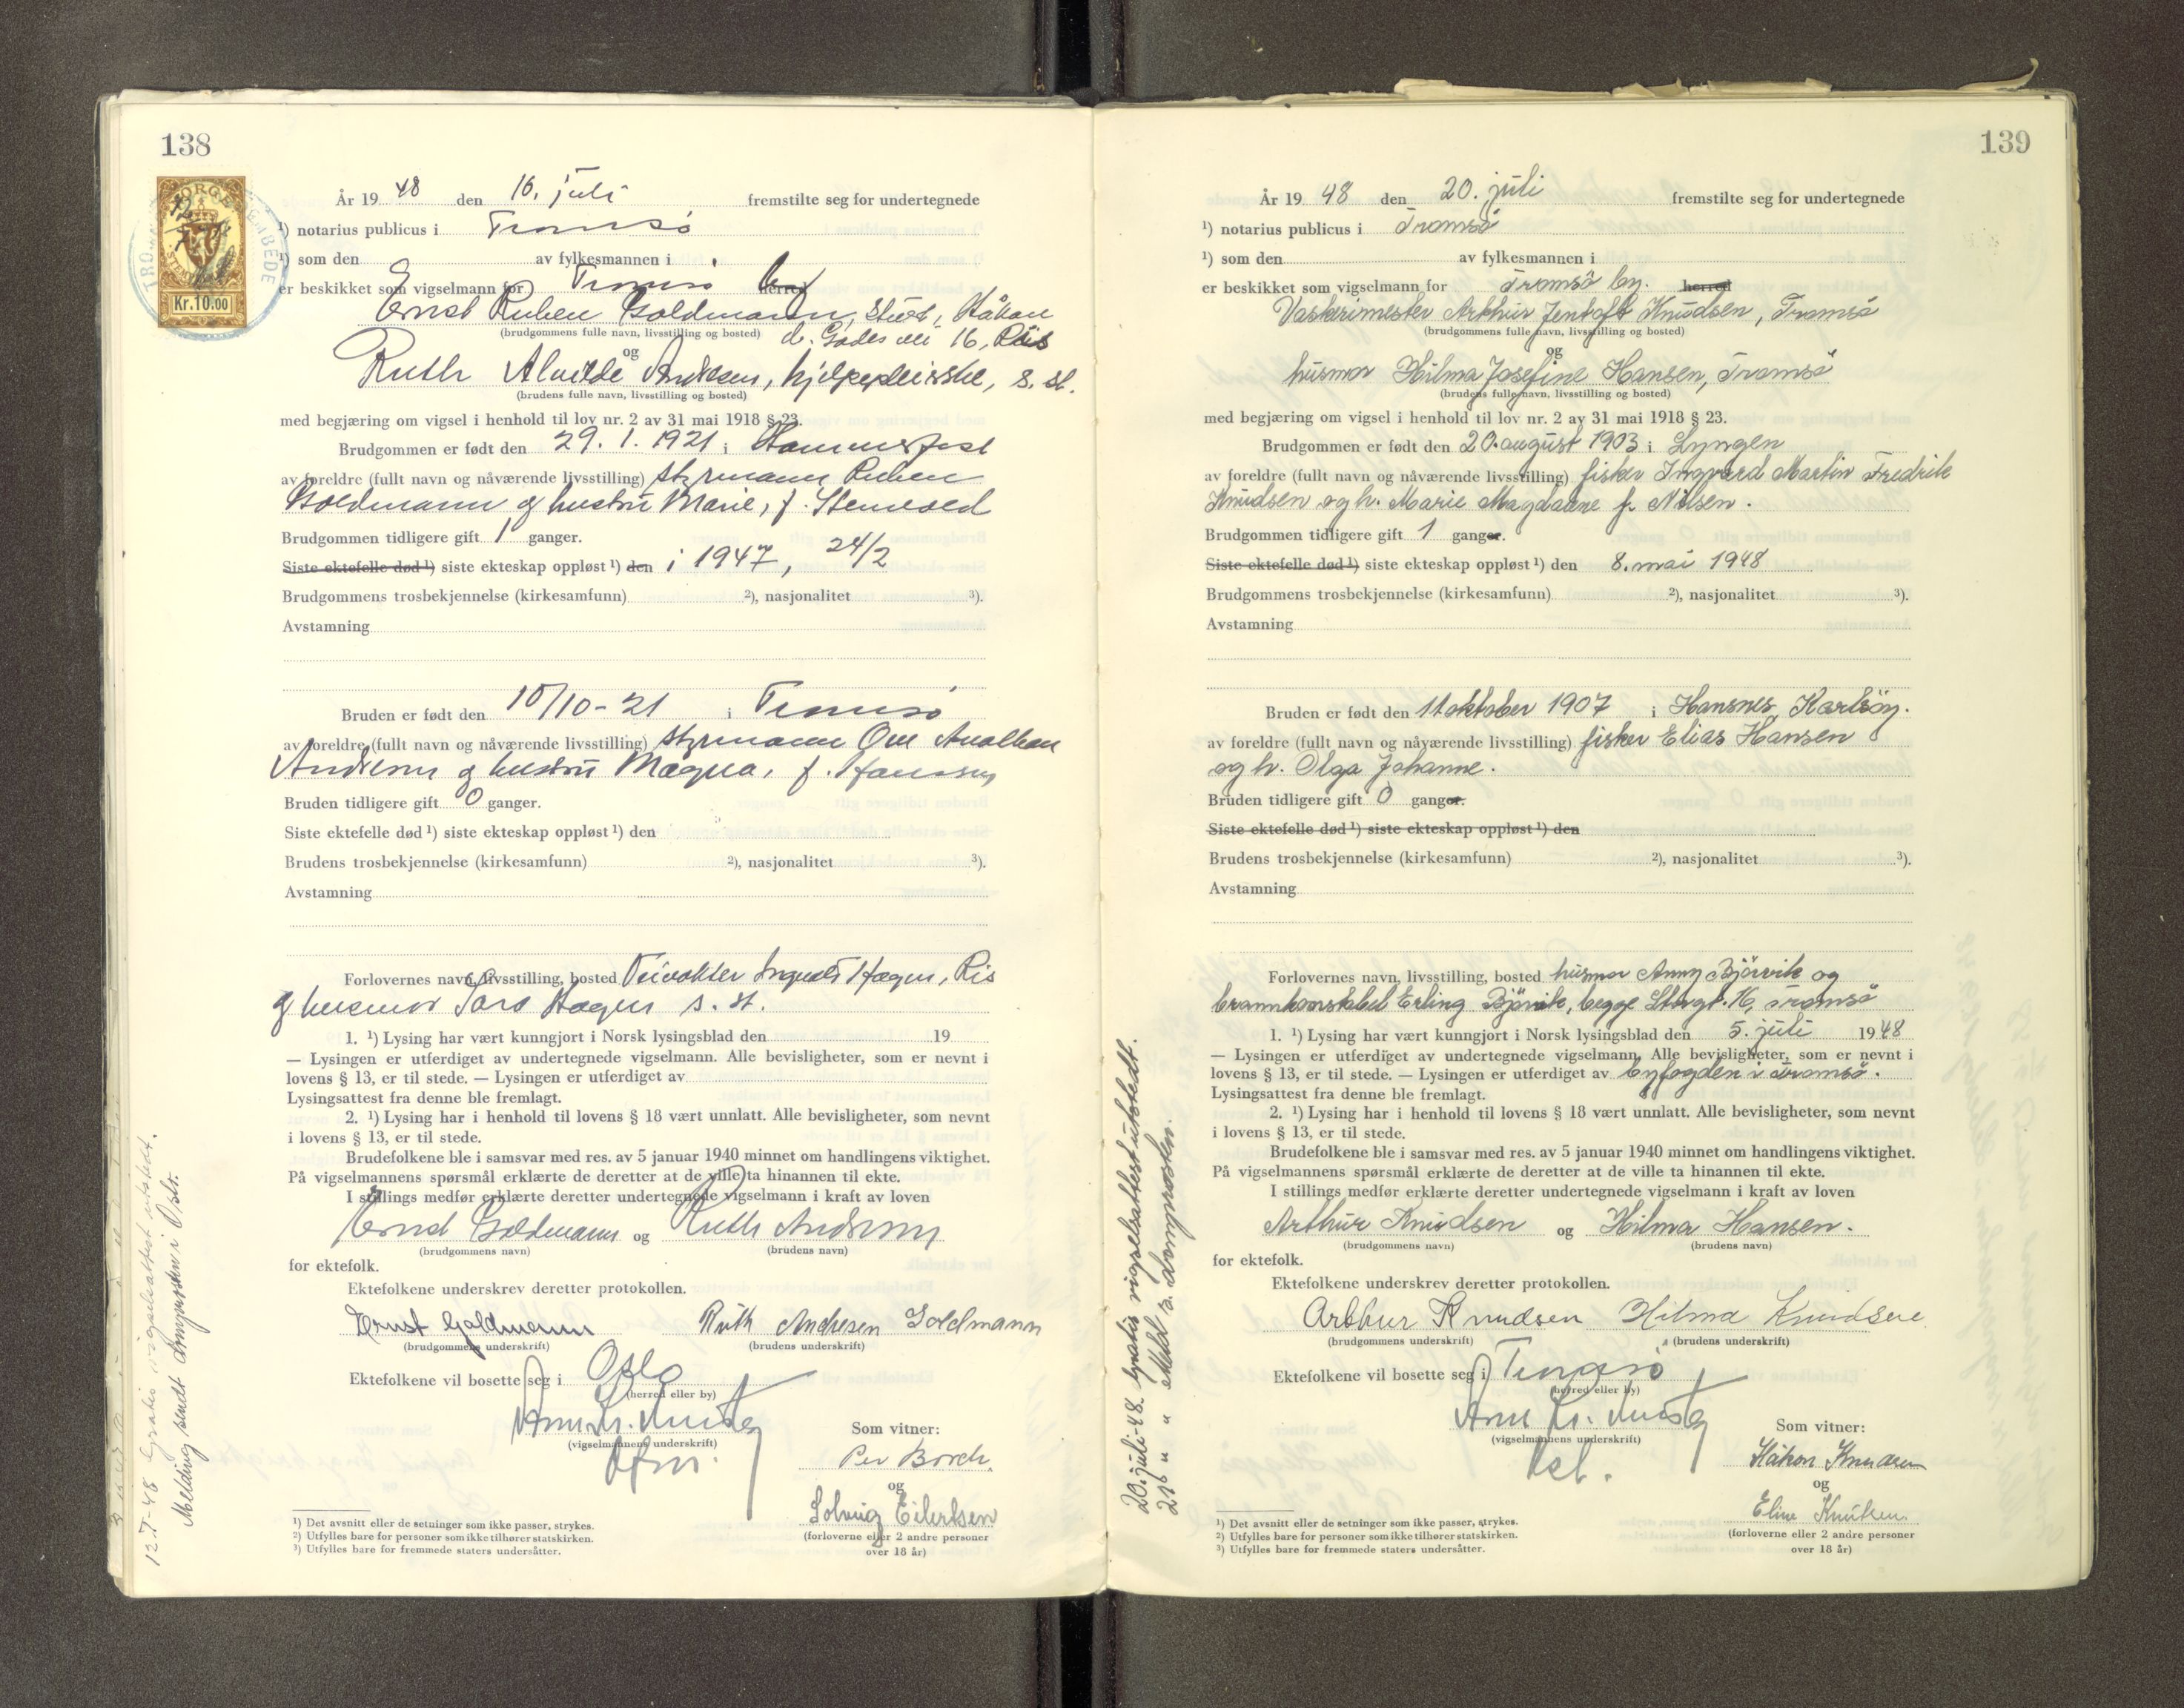 138
Kr.10.00
År 19 48 den 16. juli fremstilte seg for undertegnede
¹) notarius publicus i Tromsø
¹) som den av fylkesmannen i
er beskikket som vigselmann for Tromsø by herred
Ernst Ruben Goldmann, stud, Håkon
(brudgommens fulle navn, livsstilling og bosted) d. Godes vei 16, Ris
og
Ruth Alvilde Andresen, hjelpepleierske, s. st.
(brudens fulle navn, livsstilling og bosted)
med begjæring om vigsel i henhold til lov nr. 2 av 31 mai 1918 § 23.
Brudgommen er født den 29. 1. 1921 i Hammerfest
av foreldre (fullt navn og nåværende livsstilling) styrmann Ruben
Goldmann og hustru Marie, f.
Brudgommen tidligere gift 1 ganger.
Siste ektefelle død ¹) siste ekteskap oppløst ¹) den i 1947, 24/2
Brudgommens trosbekjennelse (kirkesamfunn) ²), nasjonalitet ³).
Avstamning
Bruden er født den 10/10-21 i Tromsø
av foreldre (fullt navn og nåværende livsstilling) styrmann
Andresen og hustru Magna, f. Hanssen
Bruden tidligere gift 0 ganger.
Siste ektefelle død ¹) siste ekteskap oppløst ¹) den
Brudens trosbekjennelse (kirkesamfunn) ²), nasjonalitet ³).
Avstamning
Forlovernes navn, livsstilling, bosted Veivokter Hagen, Ris
og husmor Sara Hagen s. st.
1. ¹) Lysing har vært kunngjort i Norsk lysingsblad den 19
— Lysingen er utferdiget av undertegnede vigselmann. Alle bevisligheter, som er nevnt i
lovens § 13, er til stede. — Lysingen er utferdiget av
Lysingsattest fra denne ble fremlagt.
2. ¹) Lysing har i henhold til lovens § 18 vært unnlatt. Alle bevisligheter, som nevnt
i lovens § 13, er til stede.
Brudefolkene ble i samsvar med res. av 5 januar 1940 minnet om handlingens viktighet.
På vigselmannens spørsmål erklærte de deretter at de ville ta hinannen til ekte.
I stillings medfør erklærte deretter undertegnede vigselmann i kraft av loven
Ernst Goldmann og Ruth Andresen
(brudgommens navn) (brudens navn)
for ektefolk.
Ektefolkene underskrev deretter protokollen.
Ernst Goldmann Ruth Andresen Goldmann
(brudgommens underskrift) (brudens underskrift)
Ektefolkene vil bosette seg i Oslo
(herred eller by)
(vigselmannens underskrift)
Som vitner:
Per Borch.
og
Solveig Eilertsen
(forloverne eller 2 andre personer
over 18 år)
¹) Det avsnitt eller de setninger som ikke passer, strykes.
²) Utfylles bare for personer som ikke tilhører statskirken.
³) Utfylles bare for fremmede staters undersåtter.
12.7-48 Gratis vigselsattest utstedt.
Melding sendt domprosten i Oslo.
139
År 19 48 den 20. juli fremstilte seg for undertegnede
¹) notarius publicus i Tromsö
¹) som den av fylkesmannen i
er beskikket som vigselmann for Tromsö by. herred
Vaskerimester Arthur Jentoft Knudsen, Tromsö
(brudgommens fulle navn, livsstilling og bosted)
og
husmor Hilma Josefine Hansen, Tromsö
(brudens fulle navn, livsstilling og bosted)
med begjæring om vigsel i henhold til lov nr. 2 av 31 mai 1918 § 23.
Brudgommen er født den 20. august 1903 i Lyngen
av foreldre (fullt navn og nåværende livsstilling) fisker Ingvard Martin Fredrik
Knudsen og h. Marie Magdalene f. Nilsen.
Brudgommen tidligere gift 1 ganger.
Siste ektefelle død ¹) siste ekteskap oppløst ¹) den 8. mai 1948
Brudgommens trosbekjennelse (kirkesamfunn) ²), nasjonalitet ³).
Avstamning
Bruden er født den 11 oktober 1907 i Hansnes, Karlsöy.
av foreldre (fullt navn og nåværende livsstilling) fisker Elias Hansen
og h. Olga Johanne.
Bruden tidligere gift 0 ganger.
Siste ektefelle død ¹) siste ekteskap oppløst ¹) den
Brudens trosbekjennelse (kirkesamfunn) ²), nasjonalitet ³).
Avstamning
Forlovernes navn, livsstilling, bosted husmor Anny Björvik og
brannkonstabel Erling Björvik, begge Storgt. 16, Tromsö
1. ¹) Lysing har vært kunngjort i Norsk lysingsblad den 5. juli 1948
— Lysingen er utferdiget av undertegnede vigselmann. Alle bevisligheter, som er nevnt i
lovens § 13, er til stede. — Lysingen er utferdiget av byfogden i Tromsö.
Lysingsattest fra denne ble fremlagt.
2. ¹) Lysing har i henhold til lovens § 18 vært unnlatt. Alle bevisligheter, som nevnt
i lovens § 13, er til stede.
Brudefolkene ble i samsvar med res. av 5 januar 1940 minnet om handlingens viktighet.
På vigselmannens spørsmål erklærte de deretter at de ville ta hinannen til ekte.
I stillings medfør erklærte deretter undertegnede vigselmann i kraft av loven
Arthur Knudsen og Hilma Hansen.
(brudgommens navn) (brudens navn)
for ektefolk.
Ektefolkene underskrev deretter protokollen.
Arthur Knudsen Hilma Knudsen
(brudgommens underskrift) (brudens underskrift)
Ektefolkene vil bosette seg i Tromsø
(herred eller by)
(vigselmannens underskrift)
Som vitner:
Håkon Knudsen
og
Eline Knutsen
(forloverne eller 2 andre personer
over 18 år)
¹) Det avsnitt eller de setninger som ikke passer, strykes.
²) Utfylles bare for personer som ikke tilhører statskirken.
³) Utfylles bare for fremmede staters undersåtter.
20. juli-48. Gratis vigselsattest utstedt.
21. " " Meld. s. domprosten.